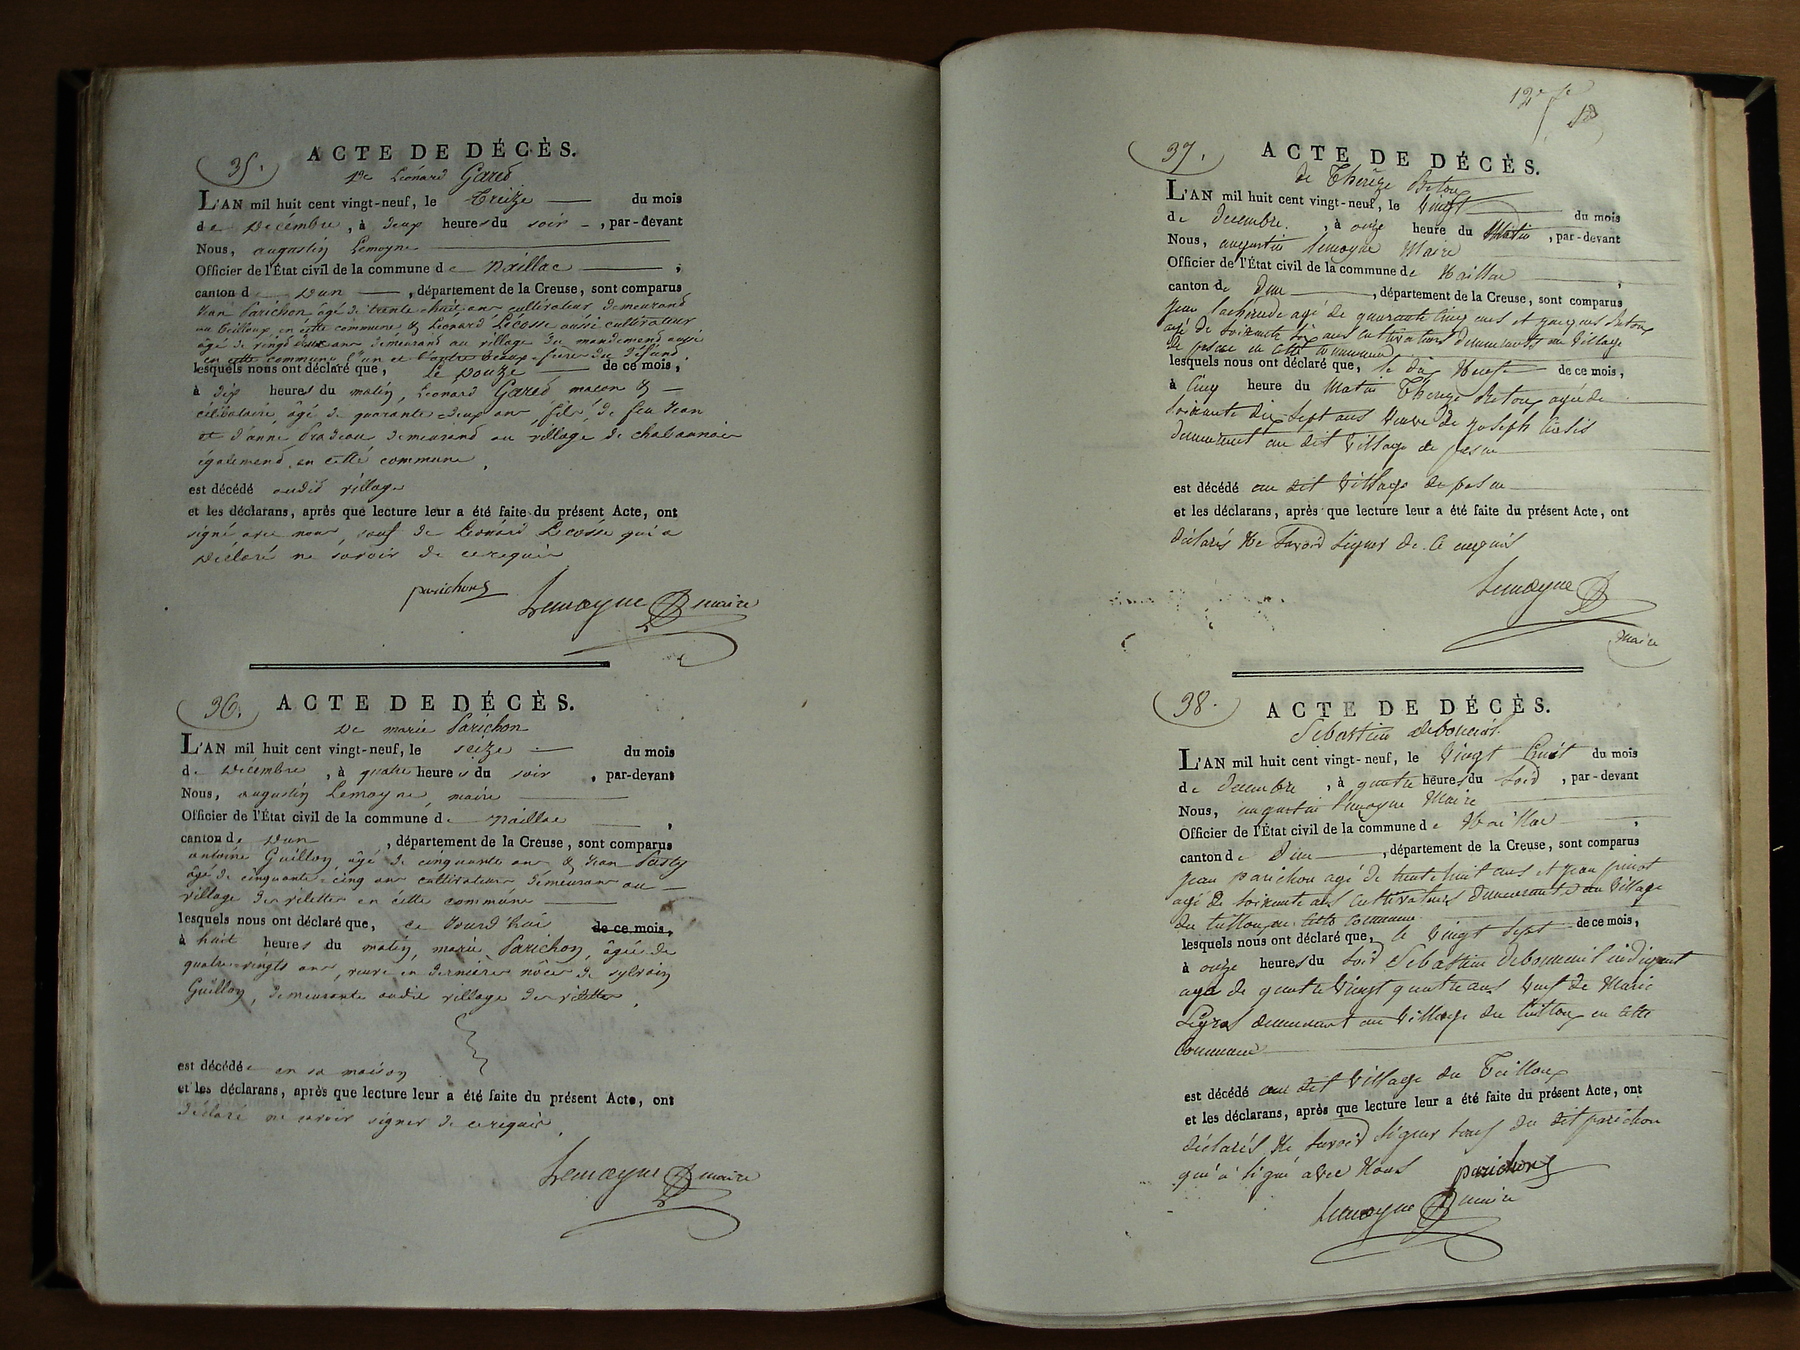 35.
ACTE DE DÉCÈS.
De Léonard Gared
L'AN mil huit cent vingt-neuf, le treize du mois
de décembre, à deux heures du soir, par-devant
Nous, augustin Lemoyne
Officier de l'État civil de la commune de Naillac ,
canton d Dun , département de la Creuse, sont comparus
Jean Parichon âgé de trente huit ans cultivateur demeurand
au teilloux en cette commune & Léonard Lécosse aussi cultivateur
âgé de vingt ans demeurand au village du mondemend aussi
en cette commune l'un et l'autre beaux-frères du défund
lesquels nous ont déclaré que, le douze de ce mois,
à dix heures du matin, Léonard Gared macon &
célibataire, âgé de quarante-deux ans, fils de feu Jean
et d'anne Pradeau demeurand au village de chabannais
égalemend en cette commune,
est décédé audid village
et les déclarans, après que lecture leur a été faite du présent Acte, ont
signé avec nous, sauf de Léonard Lécosse qui a
déclaré ne savoir de ce requis
parichon
Lemoyne maire
36.
ACTE DE DÉCÈS.
De marie Parichon
L'AN mil huit cent vingt-neuf, le seize du mois
de décembre, à quatre heures du soir, par-devant
Nous, augustin Lemoyne, maire
Officier de l'État civil de la commune de Naillac ,
canton de Dun , département de la Creuse, sont comparus
antoine Guillon âgé de cinquante ans & Jean
âgé de cinquante-cinq ans cultivateurs demeurans au
village des en cette commune
lesquels nous ont déclaré que, ce Jourd'hui de ce mois,
à huit heures du matin, marie Parichon, âgée de
quatre-vingts ans, veuve en dernières nôces de sylvain
Guillon, demeurante audit village des
est décédée en sa maison
et les déclarans, après que lecture leur a été faite du présent Acte, ont
déclaré ne savoir signer de ce requis,
Lemoyne maire
12e
37.
ACTE DE DÉCÈS.
de Thereze Betoux
L'AN mil huit cent vingt-neuf, le vingt du mois
de decembre, à onze heure du Matin, par-devant
Nous, augustin lemoyne Maire
Officier de l'État civil de la commune de Naillac ,
canton de Dun , département de la Creuse, sont comparus
jean agé de quarante cinq ans et Betoux
agé de soixante ans cultivateurs demeurants au village
de en cette commune
lesquels nous ont déclaré que, le dix Neuf de ce mois,
à Cinq heure du Matin Thereze Betoux agée de
soixante dix sept ans veuve de joseph
demeurant au dit village de
est décédé au dit village de
et les déclarans, après que lecture leur a été faite du présent Acte, ont
déclarés Ne Savoir Signer de Ce enquis
Lemoyne
Maire
38.
ACTE DE DÉCÈS.
Sebastien debonneil
L'AN mil huit cent vingt-neuf, le vingt huit du mois
de decembre, à quatre heures du Soir, par-devant
Nous, augustin lemoyne Maire
Officier de l'État civil de la commune de Naillac ,
canton de Dun , département de la Creuse, sont comparus
jean parichon agé de trente huit ans et jean
agé de soixante ans cultivateurs demeurants au village
du en cette commune
lesquels nous ont déclaré que, le vingt sept de ce mois,
à onze heures du Soir Sebastien debonneil indigent
agé de quatre vingt quatre ans veuf de Marie
Legros demeurant au village du en cette
commune
est décédé au dit village du Teilloux
et les déclarans, après que lecture leur a été faite du présent Acte, ont
déclarés Ne Savoir Signer Sauf du dit parichon
qui à Signé avec Nous parichon
Lemoyne maire